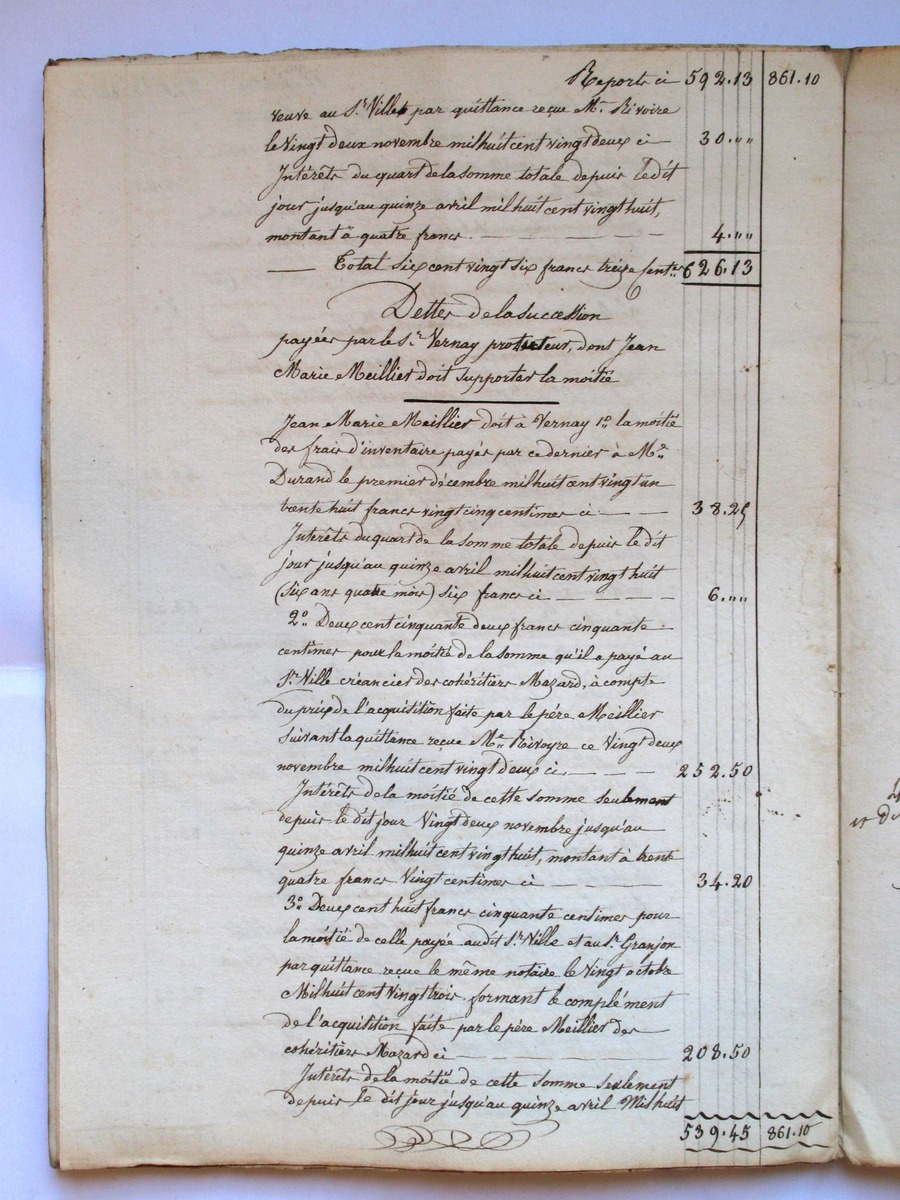 Report ci 592.13 861.10
veuve au Sr. Ville par quittance reçue Me. Rivoire
le Vingt deux novembre mil huit cent vingt deux ci 30."
Intérêts du quart de la somme totale depuis le dit
jour jusqu'au quinze avril mil huit cent vingt huit,
montant à quatre francs 4."
Total six cent vingt six francs treize Cent.es 626.13
Dettes de la succession
payées par le Sr. Vernay protuteur, dont Jean
Marie Meillier doit supporter la moitié
Jean Marie Meillier doit à Vernay 1o. la moitié
des frais d'inventaire payés par ce dernier à Me.
Durand le premier décembre mil huit cent vingt un
trente huit francs vingt cinq centimes ci 38.25
Intérêts du quart de la somme totale depuis le dit
jour jusqu'au quinze avril mil huit cent vingt huit
(six ans quatre mois) six francs ci 6."
2o. Deux cent cinquante deux francs cinquante
centimes pour la moitié de la somme qu'il a payé au
Sr. Ville créancier des cohéritiers Mazard, à compte
du prix de l'acquisition faite par le père Meillier
suivant la quittance reçue Me. Rivoyre ce Vingt deux
novembre mil huit cent vingt deux ci 252.50
Intérêts de la moitié de cette somme seulement
depuis le dit jour Vingt deux novembre jusqu'au
quinze avril mil huit cent vingt huit, montant à trente
quatre francs Vingt centimes ci 34.20
3o. Deux cent huit francs cinquante centimes pour
la moitié de celle payée audit Sr. Ville et au Sr. Granjon
par quittance reçue le même notaire le Vingt octobre
Mil huit cent Vingt trois formant le complément
de l'acquisition faite par le père Meillier des
cohéritiers Mazard ci 208.50
Intérêts de la moitié de cette somme seulement
depuis le dit jour jusqu'au quinze avril Mil huit
539.45 861.10